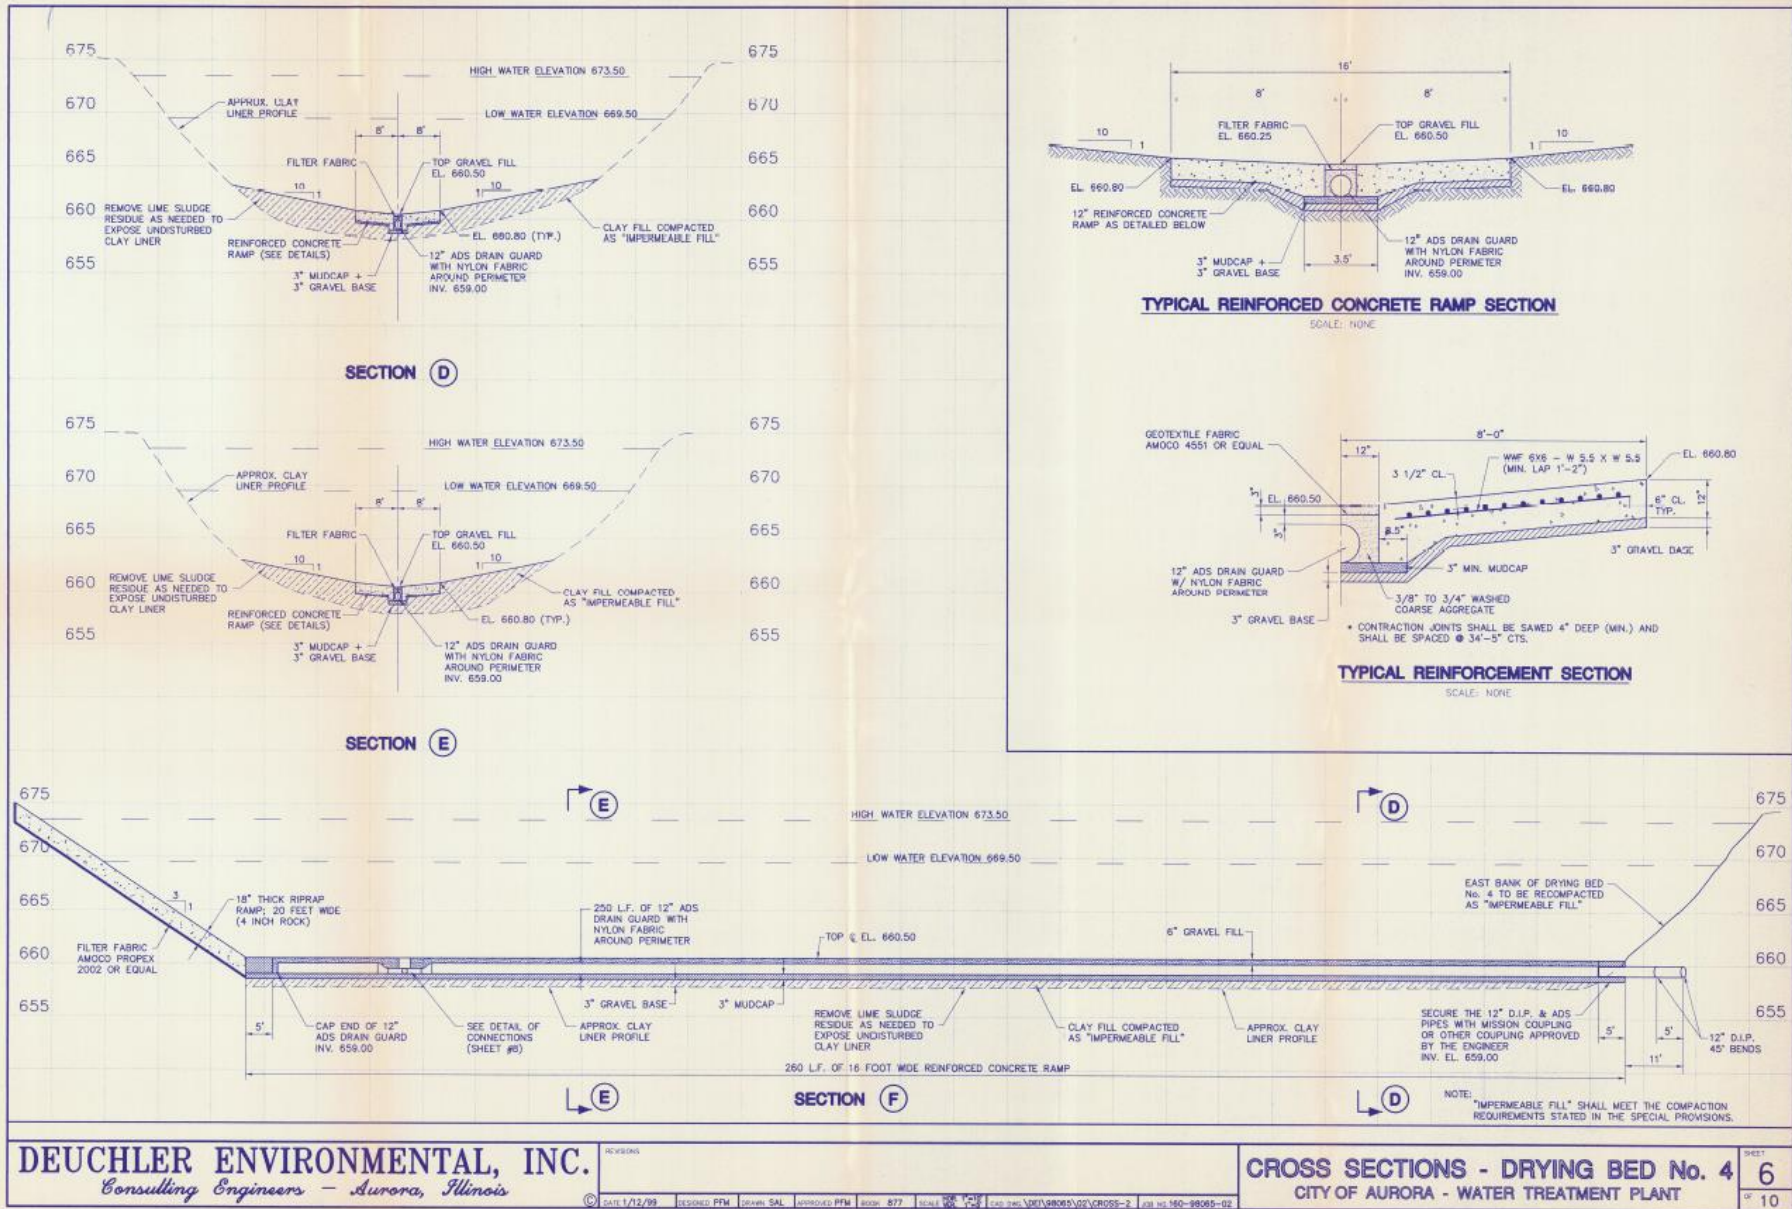 675
670
665
660
655
HIGH WATER ELEVATION 673.50
LOW WATER ELEVATION 669.50
675
670
665
660
655
APPROX. CLAY
LINER PROFILE
8'
8'
FILTER FABRIC
TOP GRAVEL FILL
EL. 660.50
10
1
10
1
REMOVE LIME SLUDGE
RESIDUE AS NEEDED TO
EXPOSE UNDISTURBED
CLAY LINER
REINFORCED CONCRETE
RAMP (SEE DETAILS)
3" MUDCAP +
3" GRAVEL BASE
EL. 660.80 (TYP.)
12" ADS DRAIN GUARD
WITH NYLON FABRIC
AROUND PERIMETER
INV. 659.00
CLAY FILL COMPACTED
AS "IMPERMEABLE FILL"
SECTION D
675
670
665
660
655
HIGH WATER ELEVATION 673.50
LOW WATER ELEVATION 669.50
675
670
665
660
655
APPROX. CLAY
LINER PROFILE
8'
8'
FILTER FABRIC
TOP GRAVEL FILL
EL. 660.50
10
1
10
1
REMOVE LIME SLUDGE
RESIDUE AS NEEDED TO
EXPOSE UNDISTURBED
CLAY LINER
REINFORCED CONCRETE
RAMP (SEE DETAILS)
3" MUDCAP +
3" GRAVEL BASE
EL. 660.80 (TYP.)
12" ADS DRAIN GUARD
WITH NYLON FABRIC
AROUND PERIMETER
INV. 659.00
CLAY FILL COMPACTED
AS "IMPERMEABLE FILL"
SECTION E
16'
8'
8'
FILTER FABRIC
EL. 660.25
TOP GRAVEL FILL
EL. 660.50
10
1
10
1
EL. 660.80
EL. 660.80
12" REINFORCED CONCRETE
RAMP AS DETAILED BELOW
3" MUDCAP +
3" GRAVEL BASE
3.5'
12" ADS DRAIN GUARD
WITH NYLON FABRIC
AROUND PERIMETER
INV. 659.00
TYPICAL REINFORCED CONCRETE RAMP SECTION
SCALE: NONE
GEOTEXTILE FABRIC
AMOCO 4551 OR EQUAL
8'-0"
12"
WWF 6X6 - W 5.5 X W 5.5
(MIN. LAP 1'-2")
3 1/2" CL.
EL. 660.80
3"
EL. 660.50
3"
6" CL.
TYP.
12"
3" GRAVEL BASE
12" ADS DRAIN GUARD
W/ NYLON FABRIC
AROUND PERIMETER
3" MIN. MUDCAP
3/8" TO 3/4" WASHED
COARSE AGGREGATE
3" GRAVEL BASE
* CONTRACTION JOINTS SHALL BE SAWED 4" DEEP (MIN.) AND
SHALL BE SPACED @ 34'-5" CTS.
TYPICAL REINFORCEMENT SECTION
SCALE: NONE
E
D
675
670
665
660
655
HIGH WATER ELEVATION 673.50
LOW WATER ELEVATION 669.50
675
670
665
660
655
3
1
18" THICK RIPRAP
RAMP; 20 FEET WIDE
(4 INCH ROCK)
FILTER FABRIC
AMOCO PROPEX
2002 OR EQUAL
250 L.F. OF 12" ADS
DRAIN GUARD WITH
NYLON FABRIC
AROUND PERIMETER
TOP ℄ EL. 660.50
6" GRAVEL FILL
EAST BANK OF DRYING BED
No. 4 TO BE RECOMPACTED
AS "IMPERMEABLE FILL"
3" GRAVEL BASE
3" MUDCAP
5'
CAP END OF 12"
ADS DRAIN GUARD
INV. 659.00
SEE DETAIL OF
CONNECTIONS
(SHEET #8)
APPROX. CLAY
LINER PROFILE
REMOVE LIME SLUDGE
RESIDUE AS NEEDED TO
EXPOSE UNDISTURBED
CLAY LINER
CLAY FILL COMPACTED
AS "IMPERMEABLE FILL"
APPROX. CLAY
LINER PROFILE
SECURE THE 12" D.I.P. & ADS
PIPES WITH MISSION COUPLING
OR OTHER COUPLING APPROVED
BY THE ENGINEER
INV. EL. 659.00
5'
5'
11'
12" D.I.P.
45° BENDS
260 L.F. OF 16 FOOT WIDE REINFORCED CONCRETE RAMP
E
SECTION F
D
NOTE:
"IMPERMEABLE FILL" SHALL MEET THE COMPACTION
REQUIREMENTS STATED IN THE SPECIAL PROVISIONS.
DEUCHLER ENVIRONMENTAL, INC.
Consulting Engineers - Aurora, Illinois
REVISIONS
© DATE 1/12/99 DESIGNED PFM DRAWN SAL APPROVED PFM BOOK 877 SCALE CAD DWG. \DEI\98065\02\CROSS-2 JOB NO. 160-98065-02
CROSS SECTIONS - DRYING BED No. 4
CITY OF AURORA - WATER TREATMENT PLANT
SHEET
6
OF 10